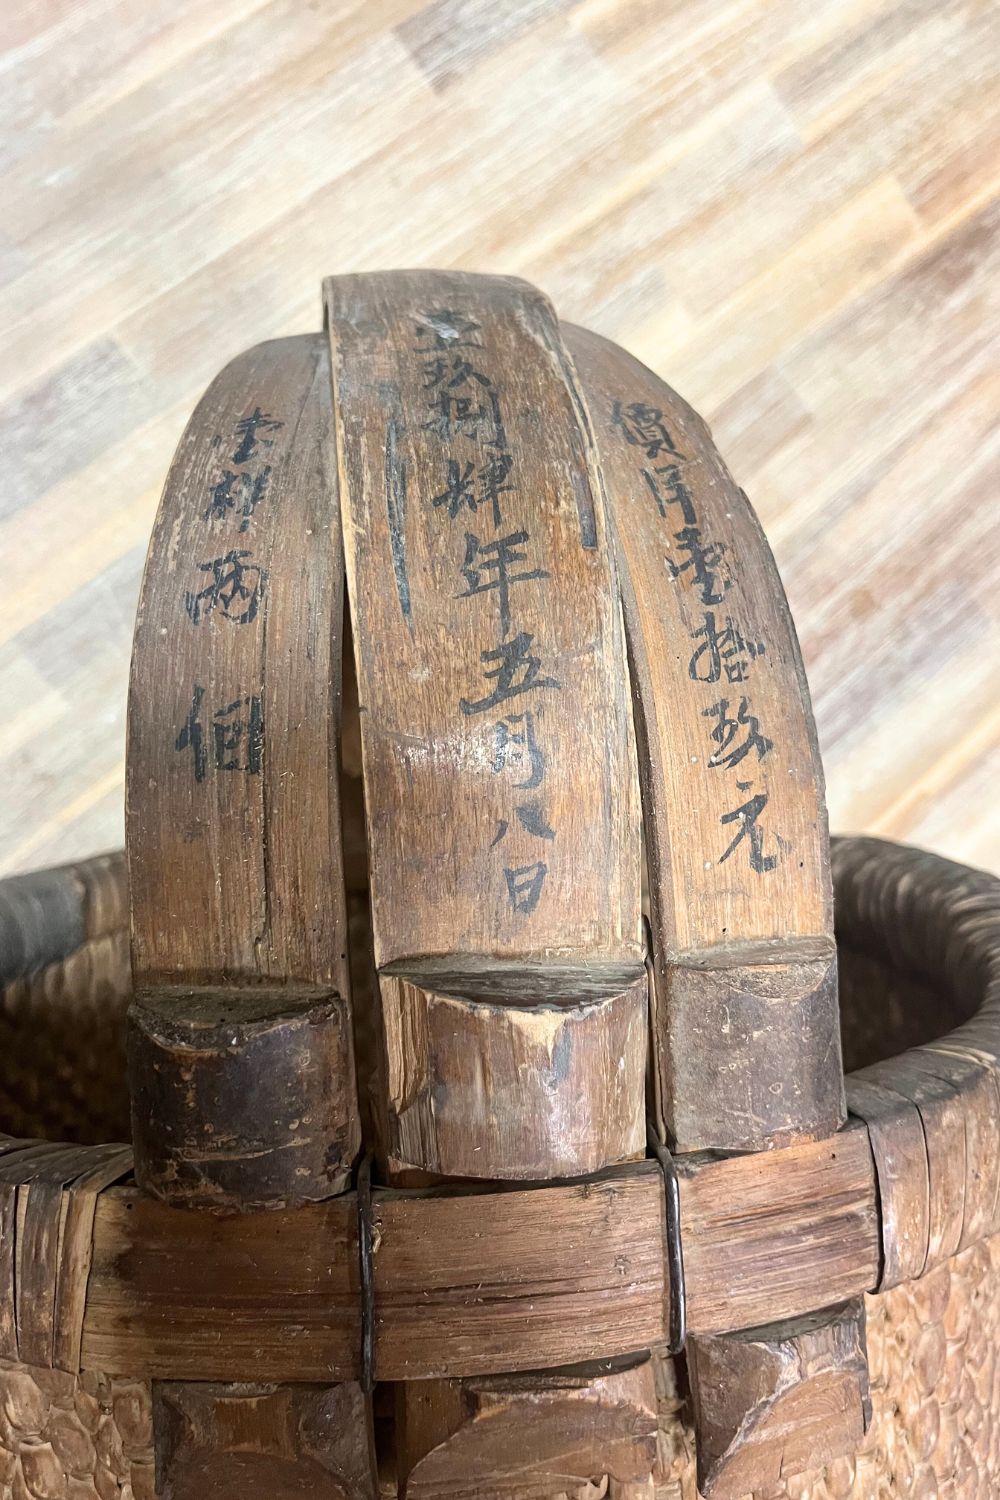 價洋壹拾玖元
壹玖捌肆年五月八日
壹样兩個